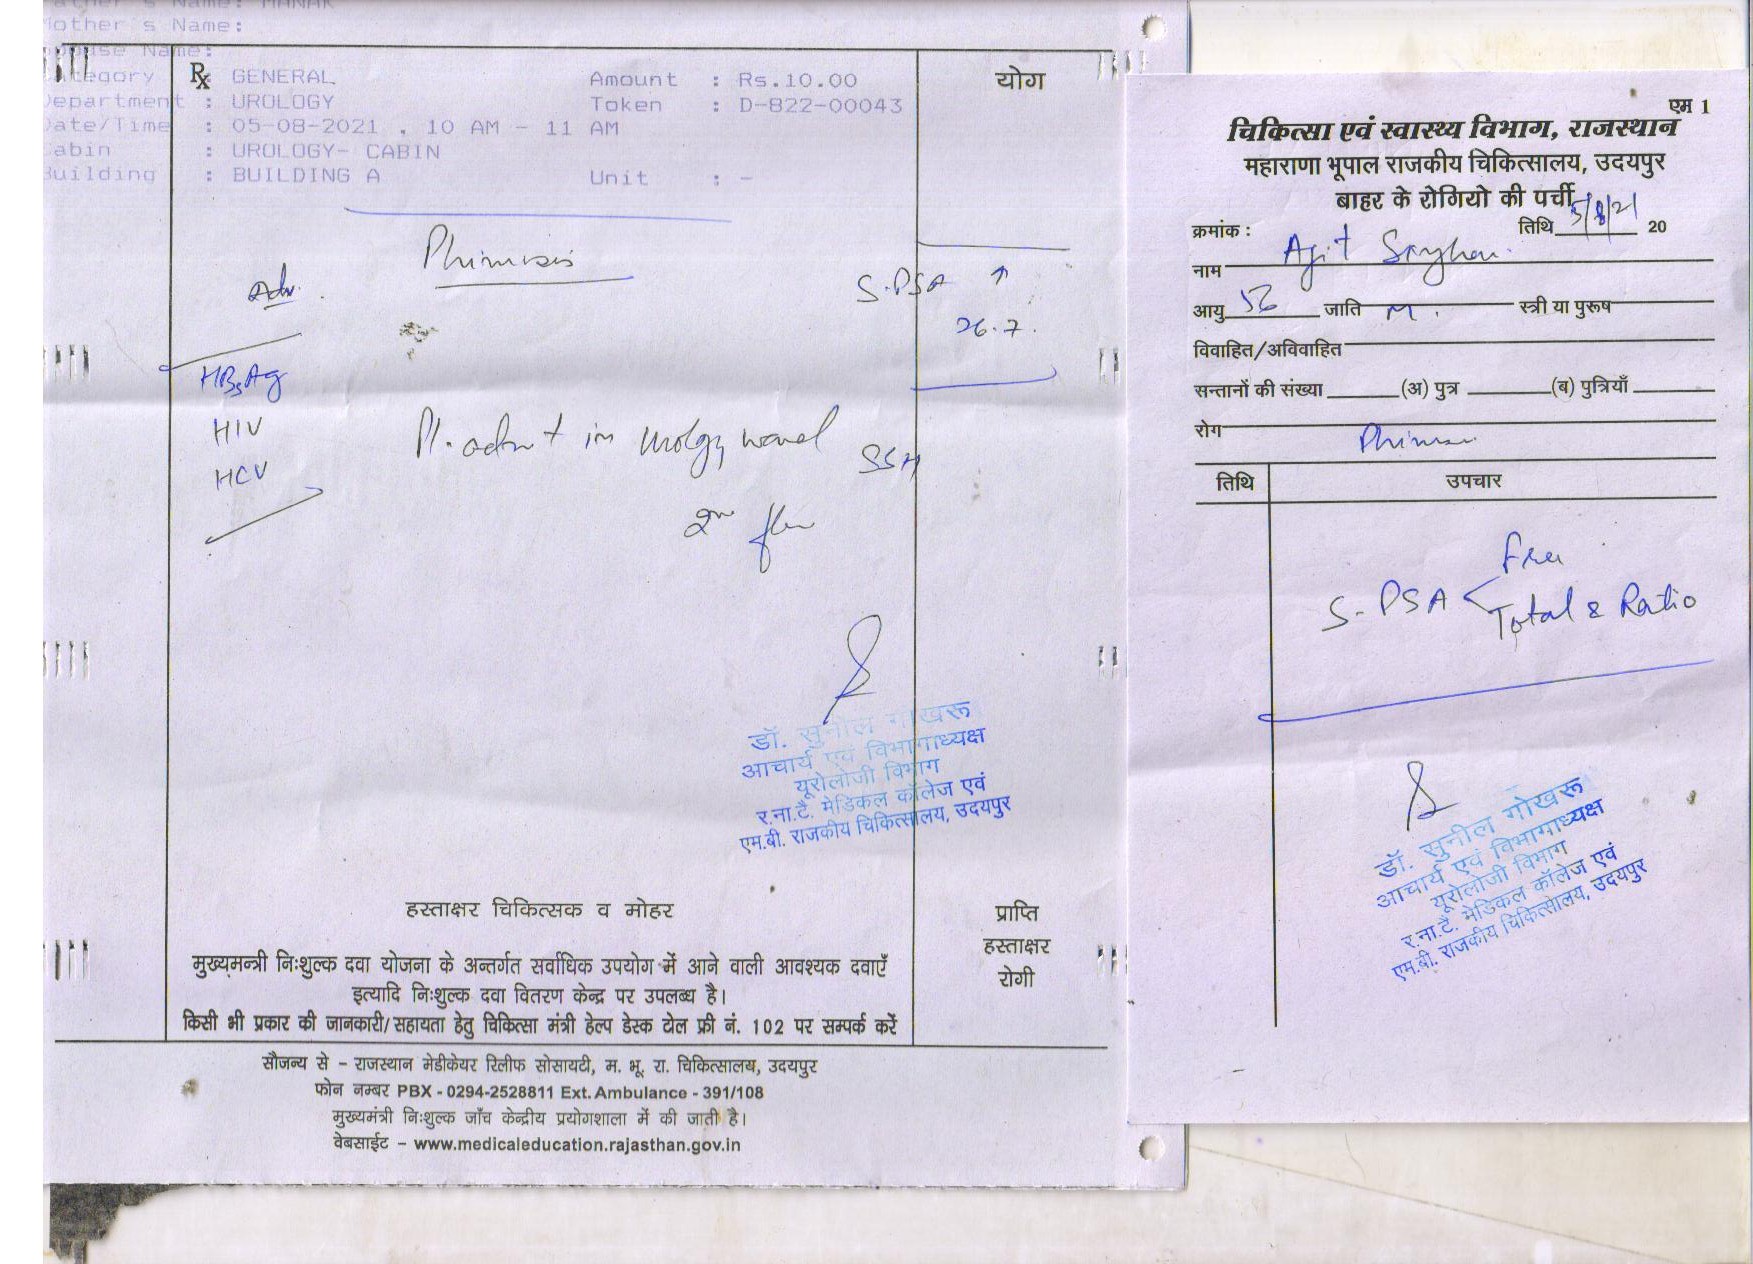 Mother's Name:
Spouse Name:
Category : GENERAL Amount : Rs.10.00
Rx
Department : UROLOGY Token : D-822-00043
Date/Time : 05-08-2021 , 10 AM - 11 AM
Cabin : UROLOGY- CABIN
Building : BUILDING A Unit : -
योग
Phimosis
Adv.
S.PSA ↑
26.7.
HBsAg
HIV
HCV
Pl. admit in urology ward SSH
डॉ. सुनील गोखरू
आचार्य एवं विभागाध्यक्ष
यूरोलोजी विभाग
र.ना.टै. मेडिकल कॉलेज एवं
एम.बी. राजकीय चिकित्सालय, उदयपुर
हस्ताक्षर चिकित्सक व मोहर
प्राप्ति
हस्ताक्षर
रोगी
मुख्यमन्त्री निःशुल्क दवा योजना के अन्तर्गत सर्वाधिक उपयोग में आने वाली आवश्यक दवाएँ
इत्यादि निःशुल्क दवा वितरण केन्द्र पर उपलब्ध है।
किसी भी प्रकार की जानकारी/सहायता हेतु चिकित्सा मंत्री हेल्प डेस्क टोल फ्री नं. 102 पर सम्पर्क करें
सौजन्य से – राजस्थान मेडीकेयर रिलीफ सोसायटी, म. भू. रा. चिकित्सालय, उदयपुर
फोन नम्बर PBX - 0294-2528811 Ext. Ambulance - 391/108
मुख्यमंत्री निःशुल्क जाँच केन्द्रीय प्रयोगशाला में की जाती है।
वेबसाईट – www.medicaleducation.rajasthan.gov.in
एम 1
चिकित्सा एवं स्वास्थ्य विभाग, राजस्थान
महाराणा भूपाल राजकीय चिकित्सालय, उदयपुर
बाहर के रोगियो की पर्ची
क्रमांक : तिथि 5/8/21 20
नाम Ajit
आयु जाति M. स्त्री या पुरूष
विवाहित/अविवाहित
सन्तानों की संख्या (अ) पुत्र (ब) पुत्रियाँ
रोग Phimosis
तिथि उपचार
Free
S-PSA < Total & Ratio
डॉ. सुनील गोखरू
आचार्य एवं विभागाध्यक्ष
यूरोलोजी विभाग
र.ना.टै. मेडिकल कॉलेज एवं
एम.बी. राजकीय चिकित्सालय, उदयपुर